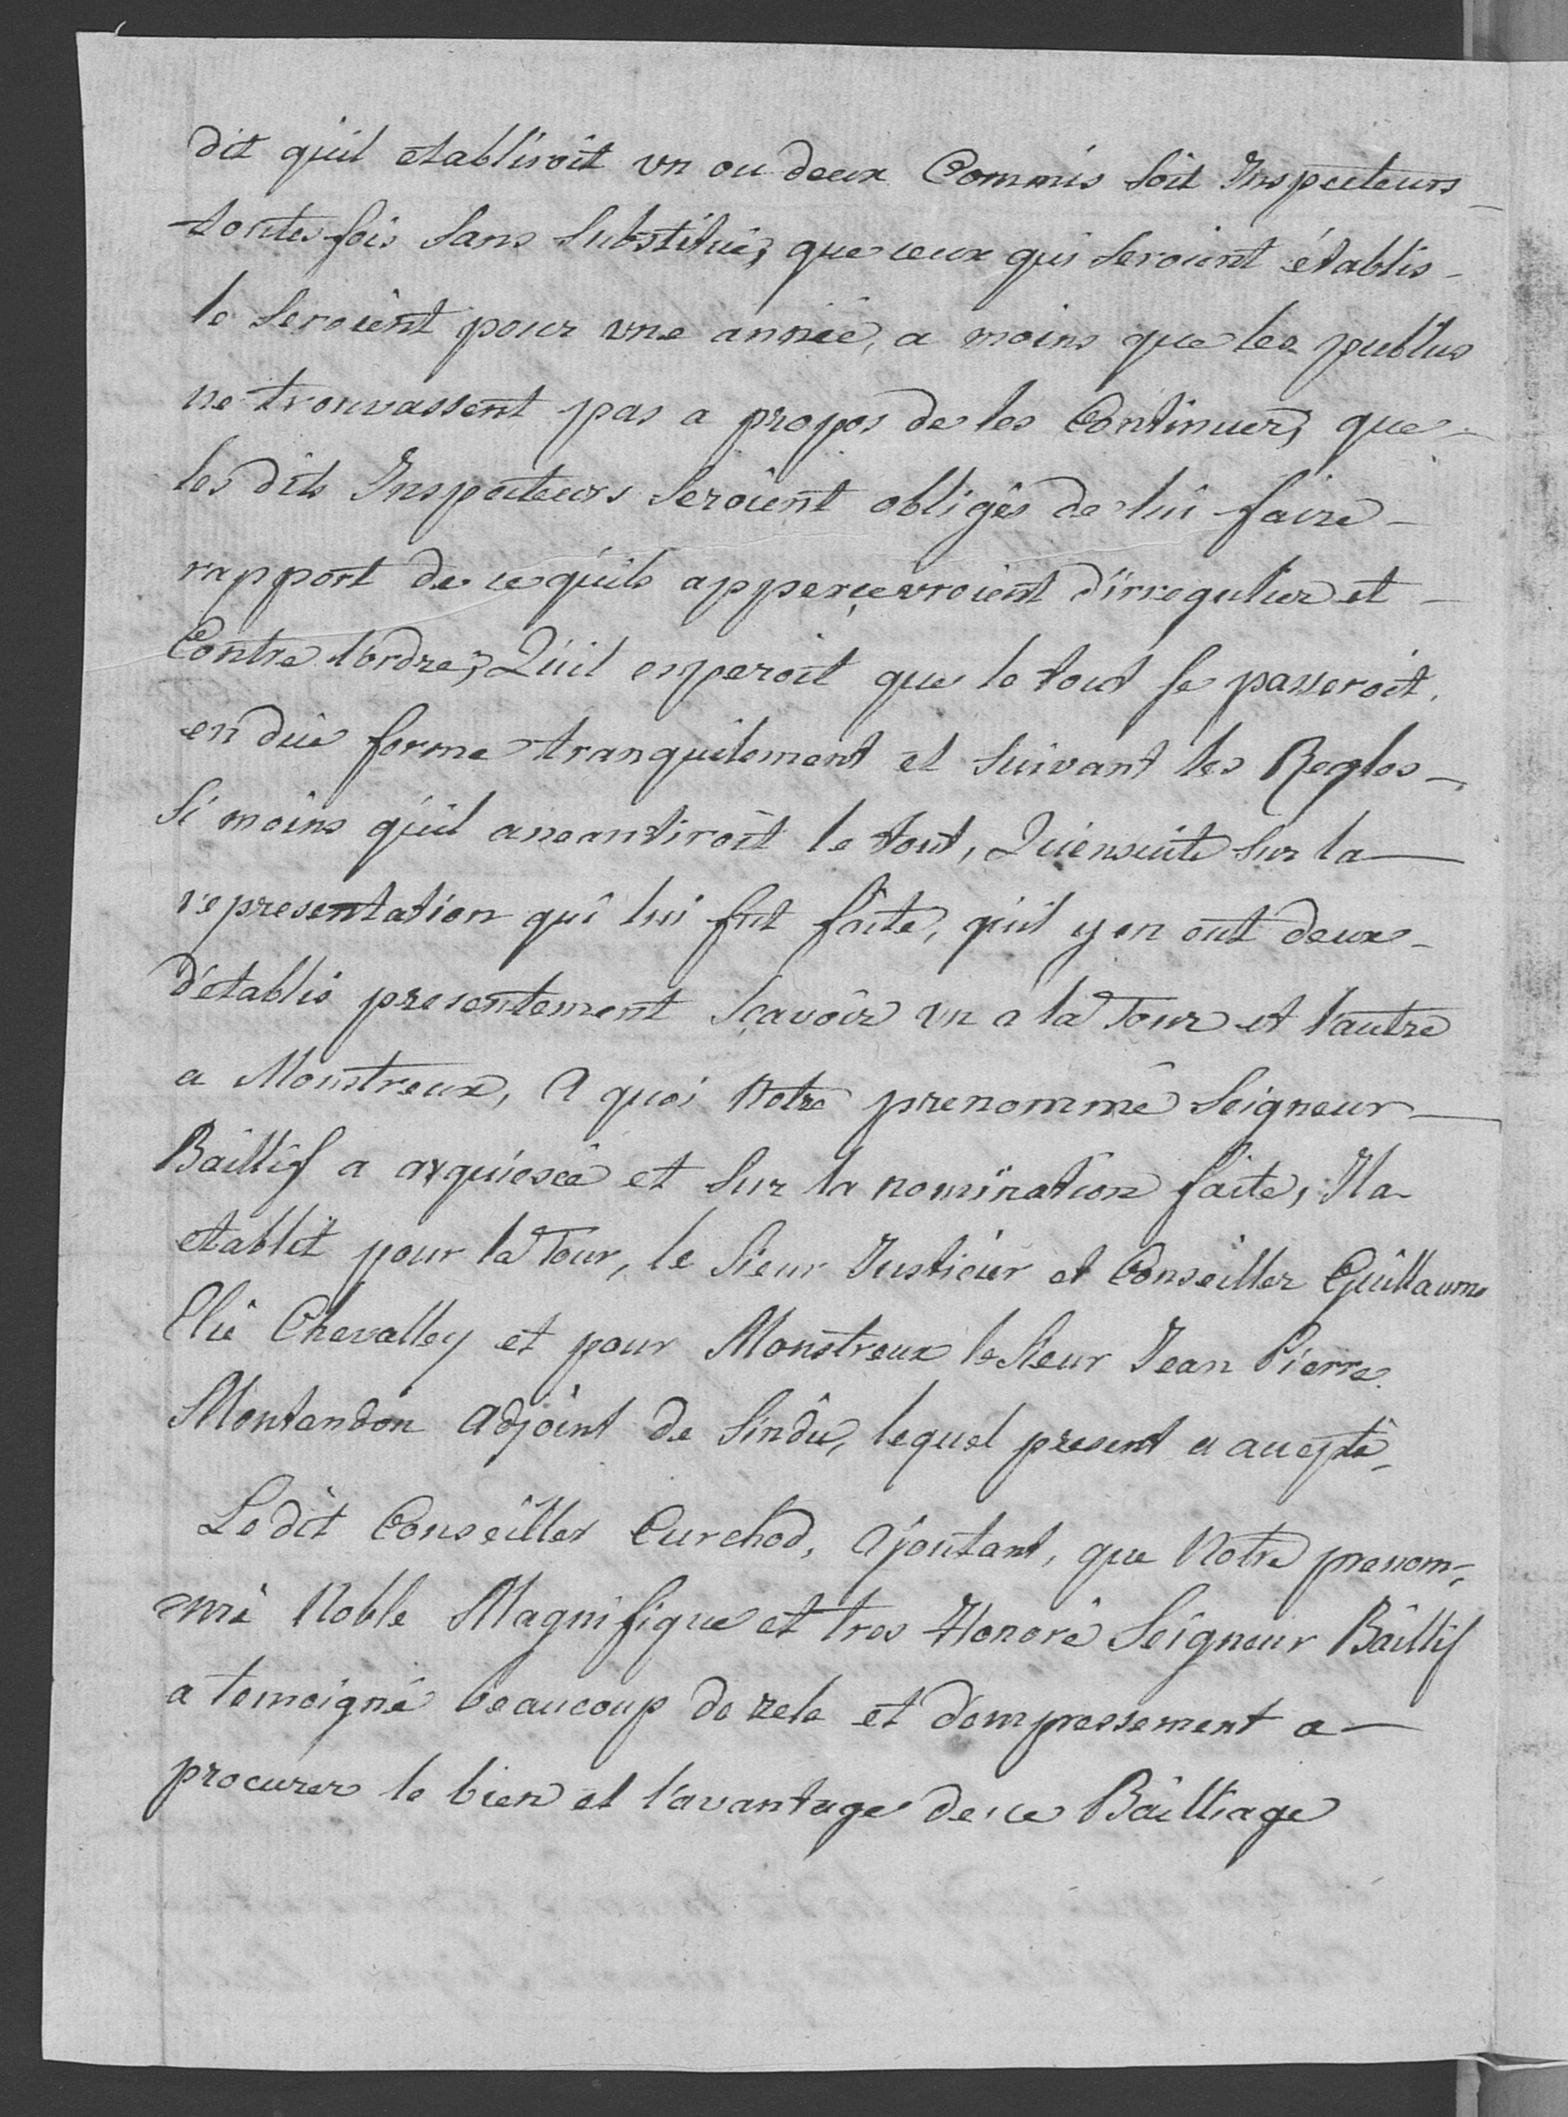 dit qu'il etabliroit un ou deux Commis soit Inspecteurs
toutes fois sans substitué, que ceux qui seroient établis
le seroient pour une année, a moins que les publics
ne trouvassent pas a propos de les Continuer, que
les dits Inspecteurs seroient obligés de lui faire
rapport de ce qu'ils apperçevroient d'irregulier et
Contre l'ordre, Qu'il esperoit que le tout se passeroit
en düe forme tranquilement et suivant les Regles
Si moins qu'il aneantiroit le tout, Qu'ensuite sur la
representation qui lui fut faite, qu'il y en eut deux
d'etablis presentement sçavoir un a la Tour et l'autre
a Monstreux, A quoi Notre prenommé Seigneur
Baillif a acquiescé et sur la nomination faite, Il a
etablit pour la Tour, le Sieur Justicier et Conseiller Guillaume
Elie Chevalley et pour Monstreux le Sieur Jean Pierre
Montandon Adjoint de Sindic, lequel present a accepté
Le dit Conseiller Curchod, Ajoutant, que Notre prenom-
mé Noble Magnifique et tres Honoré Seigneur Baillif
a temoigné beaucoup de zele et d'empressement a
procurer le bien et l'avantage de ce Bailliage